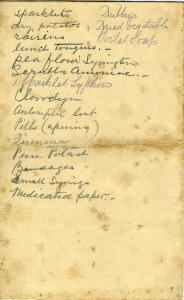 Sparklets
dry potatos
raisins
lunch tongues. -
pea flour Symington
Scrubbs Ammoniac. -
Sparklet Syphon
Clorodyn
Antiseptic lint
Pills (apening)
Quinine
Perm Potash
Bandages
Small Syringe
Medicated paper. -
Dubbin
Dried Vegetable
Toilet Soap